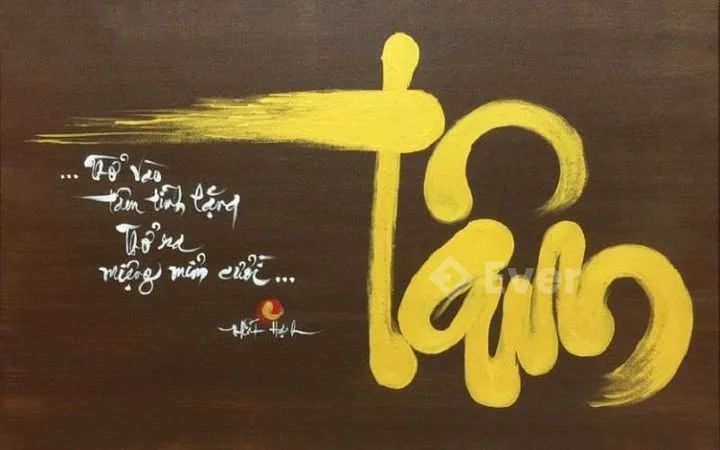 ... Thở vào
tâm tĩnh lặng
Thở ra
miệng mỉm cười ...
Nhất Hạnh
Tâm
Ever